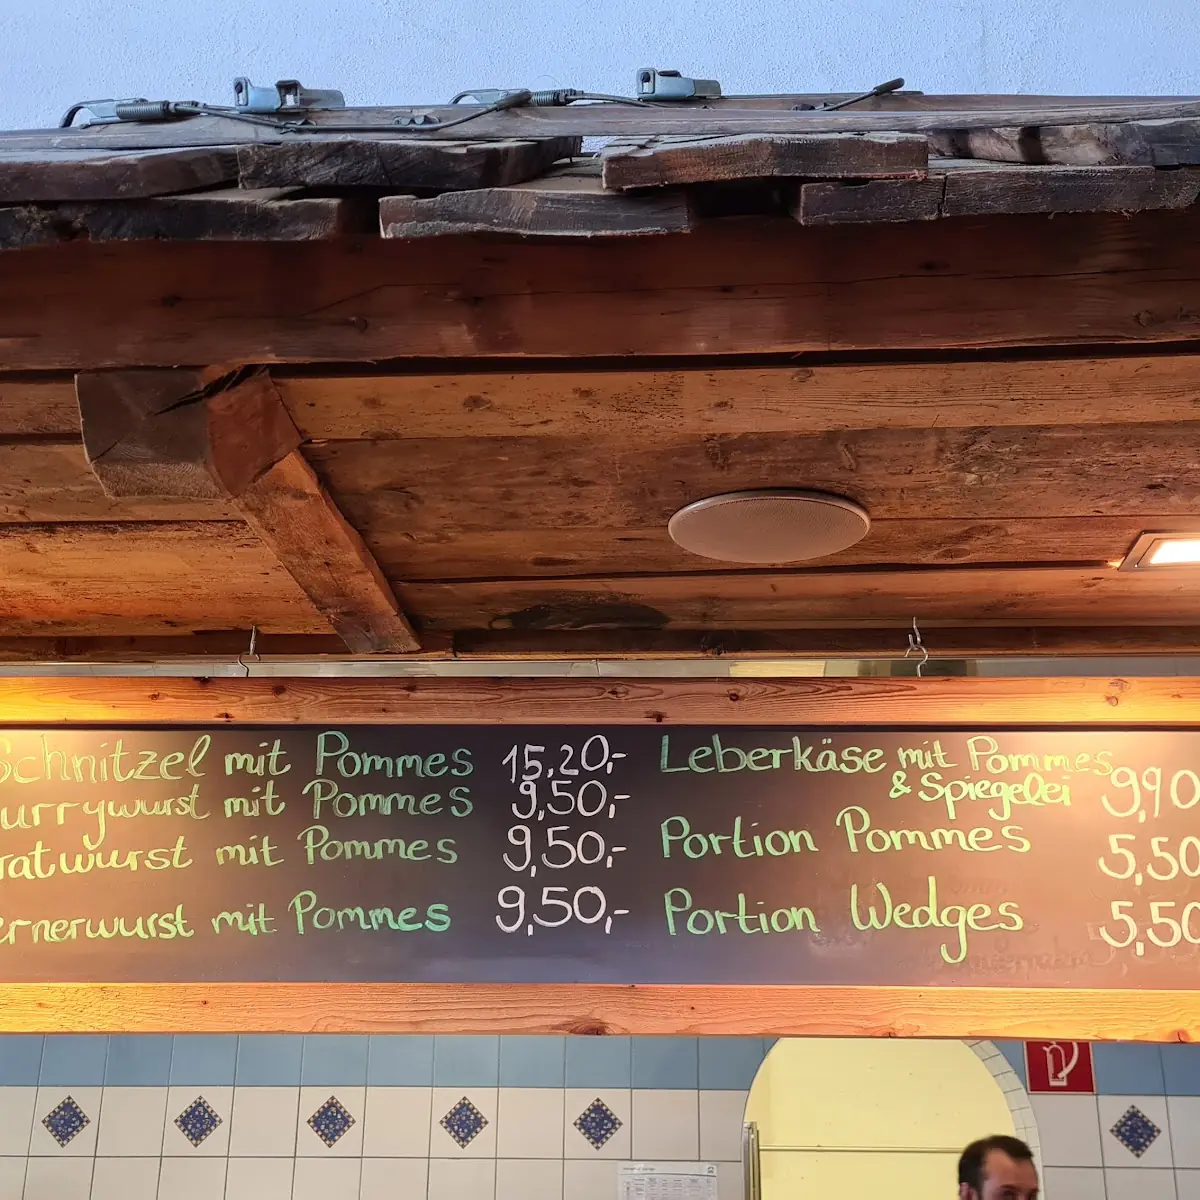 Schnitzel mit Pommes 15,20,-
urrywurst mit Pommes 9,50,-
ratwurst mit Pommes 9,50,-
ernerwurst mit Pommes 9,50,-
Leberkäse mit Pommes
& Spiegelei 9,90
Portion Pommes 5,50
Portion Wedges 5,50